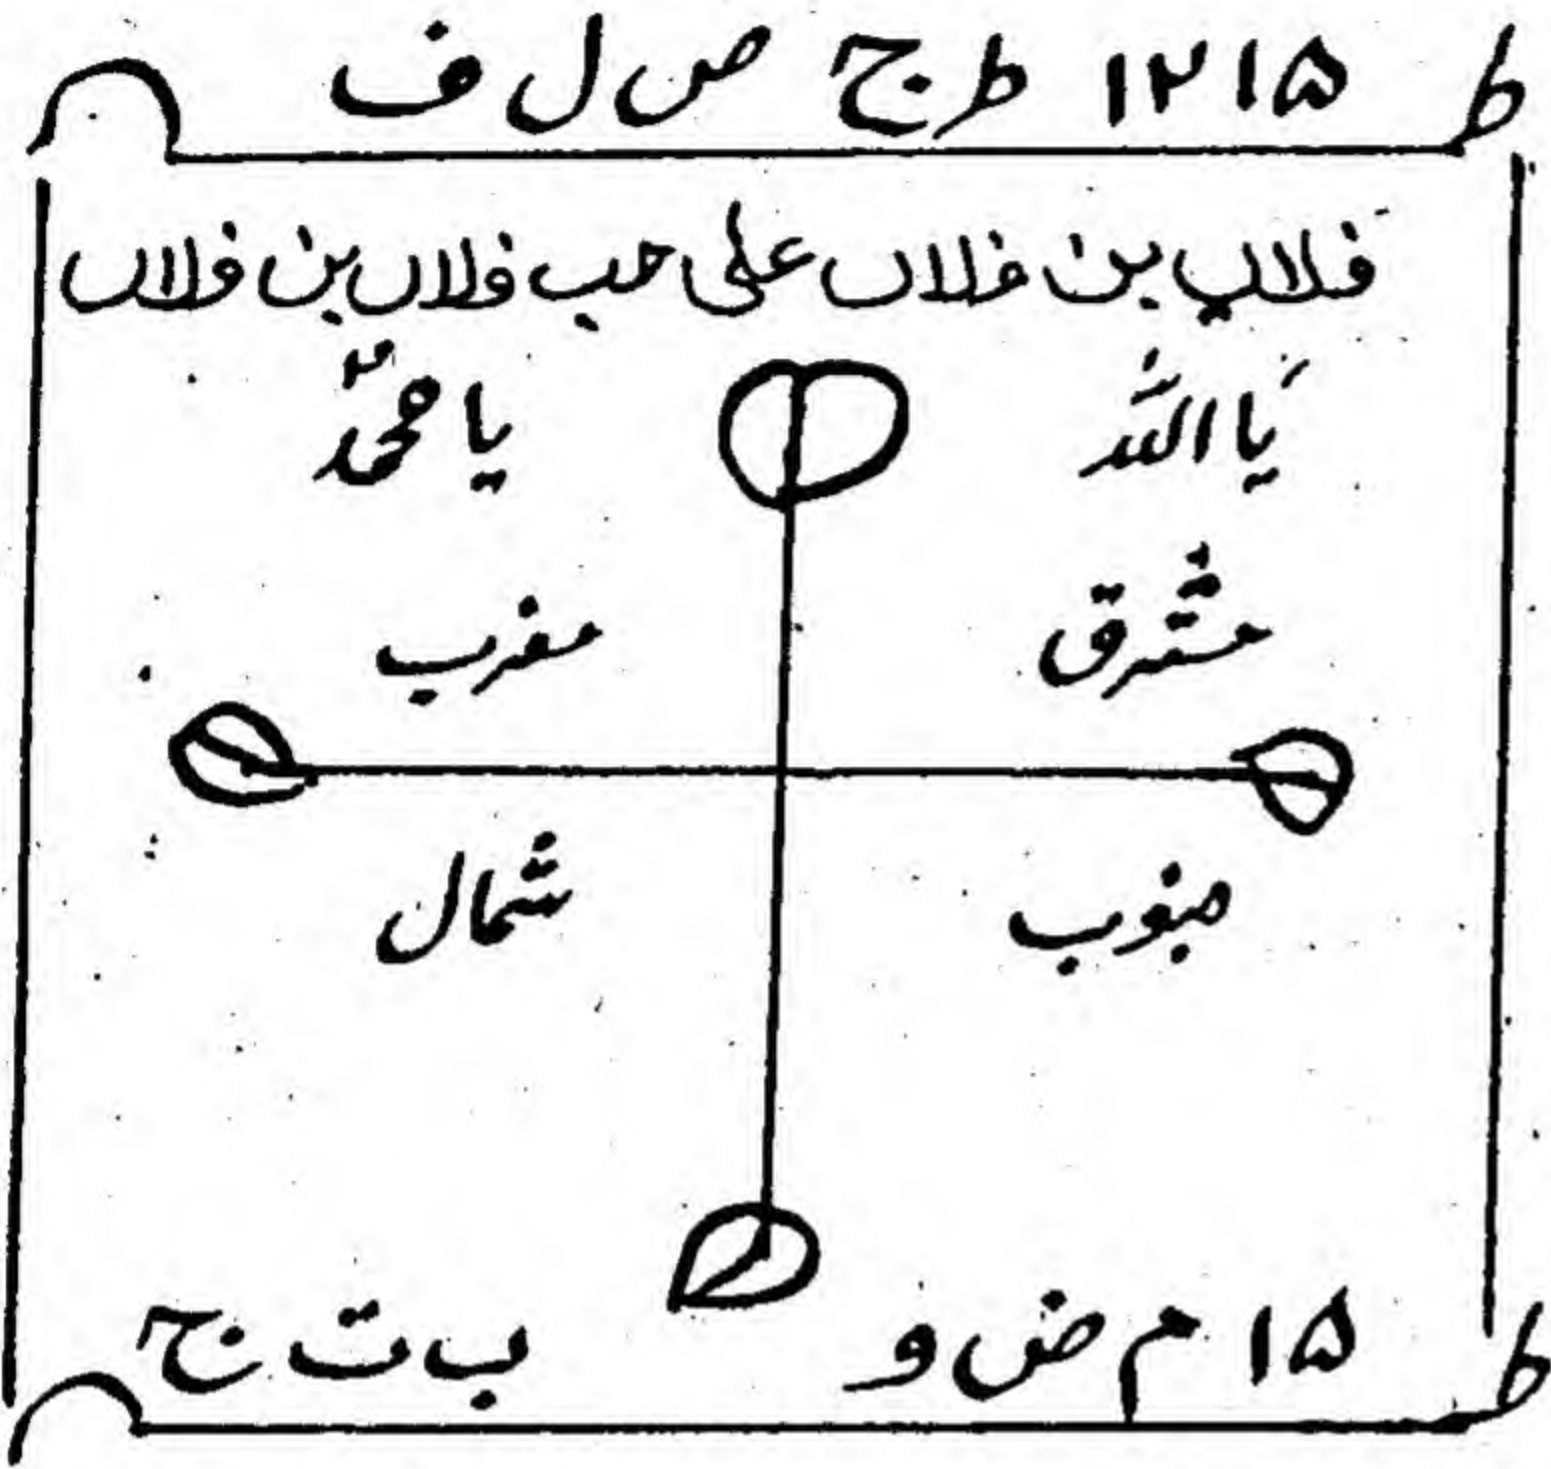 ط ۱۲۱۵ ط ج ص ل ف
فلاں بن فلاں علی حب فلاں بن فلاں
یا اللہ یا محمدؐ
مشرق مغرب
جنوب شمال
ط ۱۵ م ض و ب ت ج